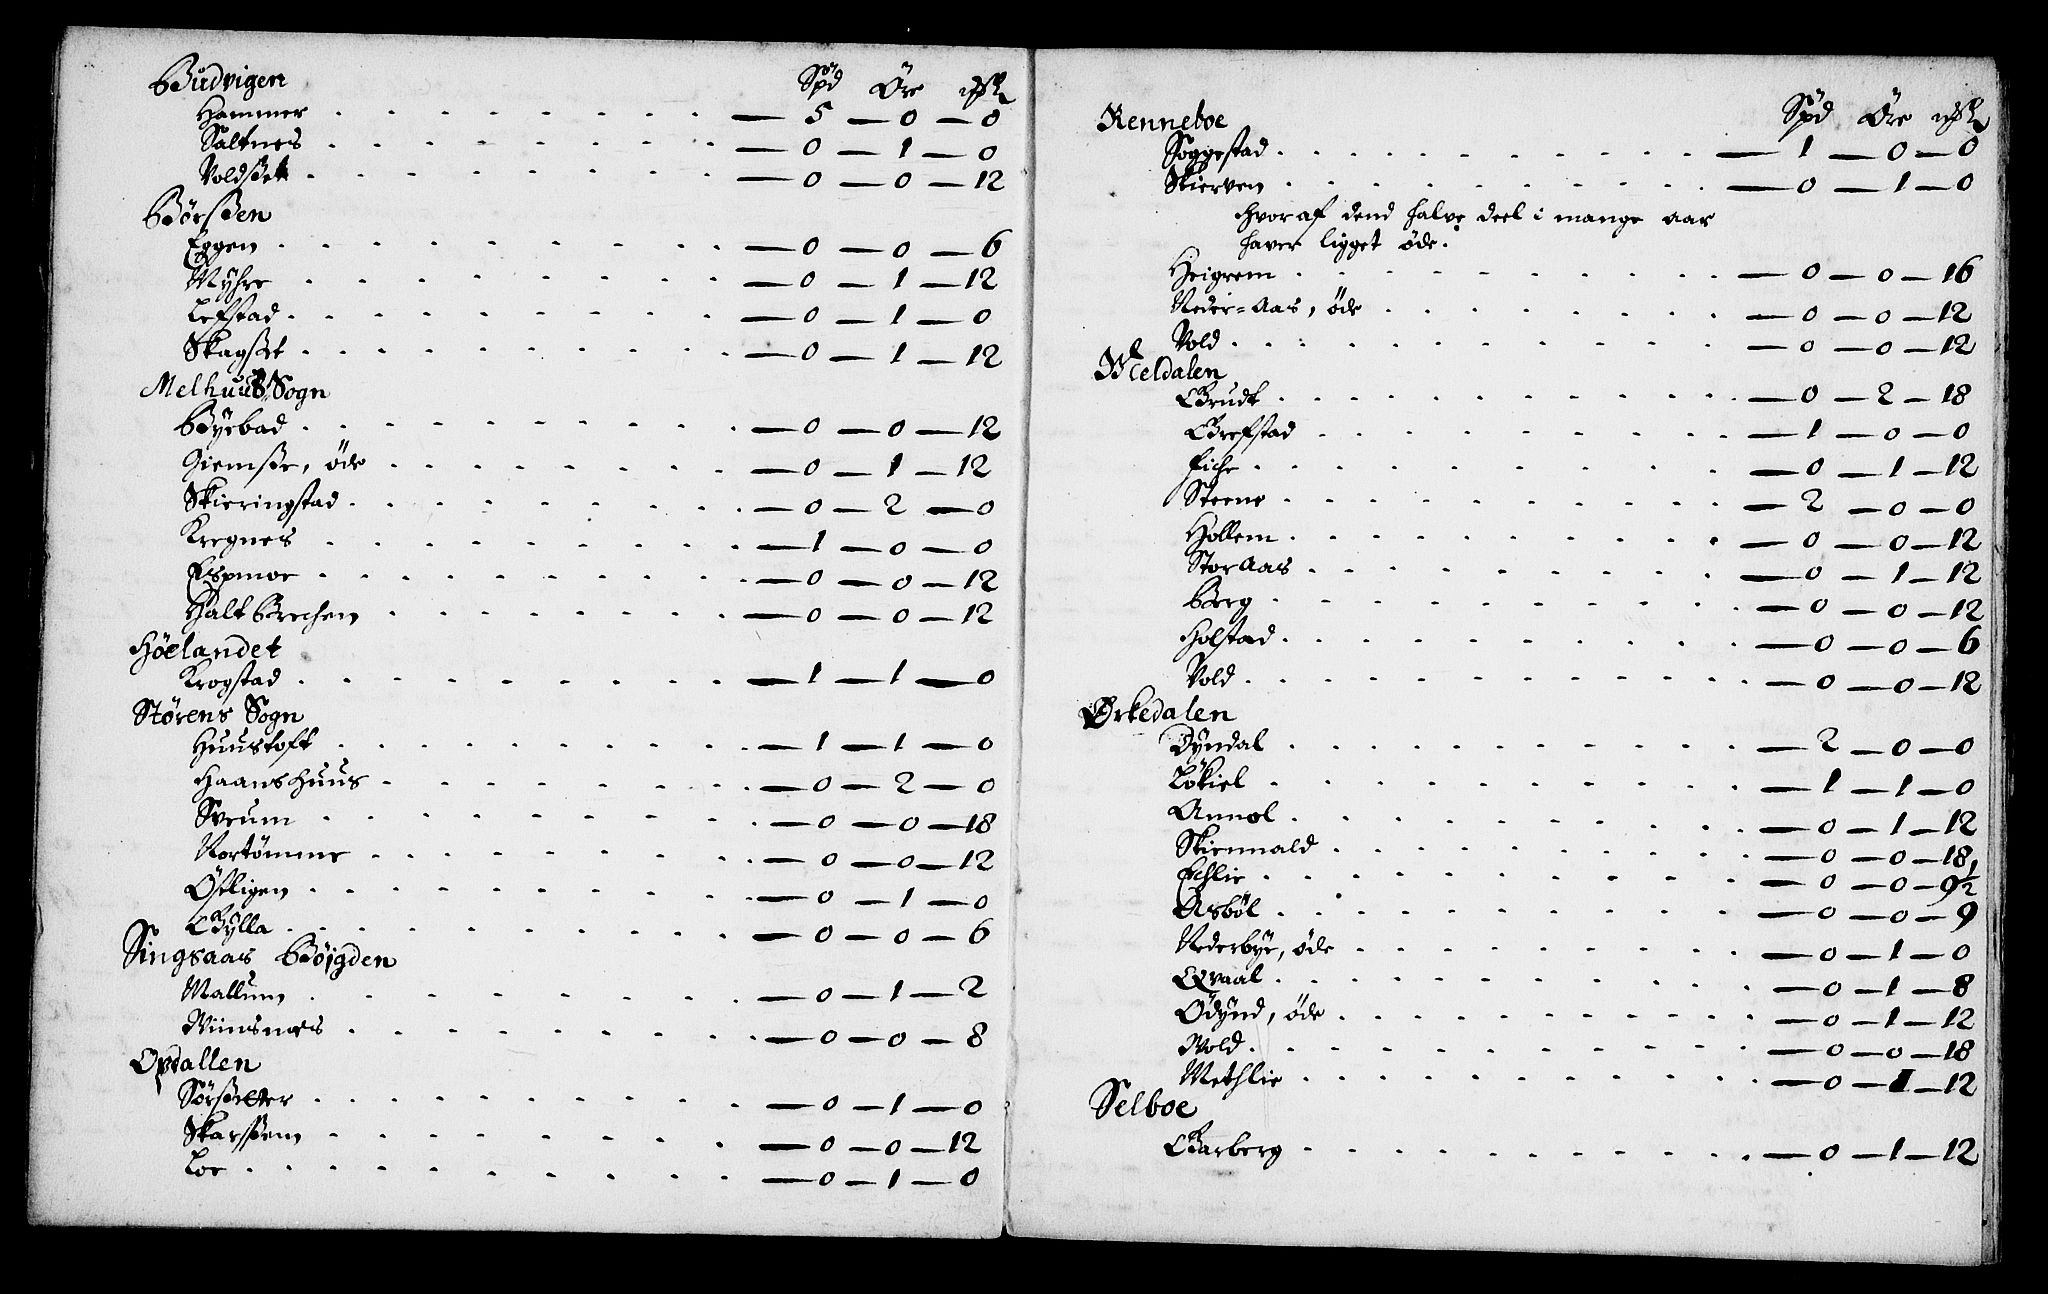 Budvigen Spd Öre mrk
Hammer 5 — 0 — 0
Saltnes 0 — 1 — 0
Voldset 0 — 0 — 12
Börssen
Eggen 0 — 0 — 6
Myhre 0 — 1 — 12
Lefstad 0 — 1 — 0
Skagset 0 — 1 — 12
Melhuus Sogn
Byebad 0 — 0 — 12
Giemsse, öde 0 — 1 — 12
Skieringstad 0 — 2 — 0
Kregnes 1 — 0 — 0
Espmoe 0 — 0 — 12
Haltbrechen 0 — 0 — 12
Höelandet
Krogstad 1 — 1 — 0
Störens Sogn
Huustoft 1 — 1 — 0
Haanshuus 0 — 2 — 0
Sveum 0 — 0 — 18
Rortömme 0 — 0 — 12
Östligen 0 — 1 — 0
Bylla 0 — 0 — 6
Singsaas Böigden
Mallum 0 — 1 — 2
Wiimsnæs 0 — 0 — 8
Opdallen
Sörsetter 0 — 1 — 0
Skarssem 0 — 0 — 12
Loe 0 — 1 — 0
Renneboe Spd Öre mrk
Soggestad 1 — 0 — 0
Skierven 0 — 1 — 0
Hvoraf dend halve deel i mange aar
haver ligget öde.
Heigrem 0 — 0 — 16
Neder=Aas, öde 0 — 0 — 12
Vold 0 — 0 — 12
Meldalen
Grudt 0 — 2 — 18
Grefstad 1 — 0 — 0
Eiche 0 — 1 — 12
Steene 2 — 0 — 0
Hollem 0 — 0 — 12
StorAas 0 — 1 — 12
Berg 0 — 0 — 12
Holstad 0 — 0 — 6
Vold 0 — 0 — 12
Ørkedalen
Dyndal 2 — 0 — 0
Lökiel 1 — 1 — 0
Annol 0 — 1 — 12
Skiennald 0 — 0 — 18
Echlie 0 — 0 — 9 1/2
Asböl 0 — 0 — 9
Nederbye, öde 0 — 1 — 0
Qvaal 0 — 1 — 8
Ödynd, öde 0 — 1 — 12
Wold 0 — 0 — 18
Methlie 0 — 1 — 12
Selboe
Garberg 0 — 1 — 12